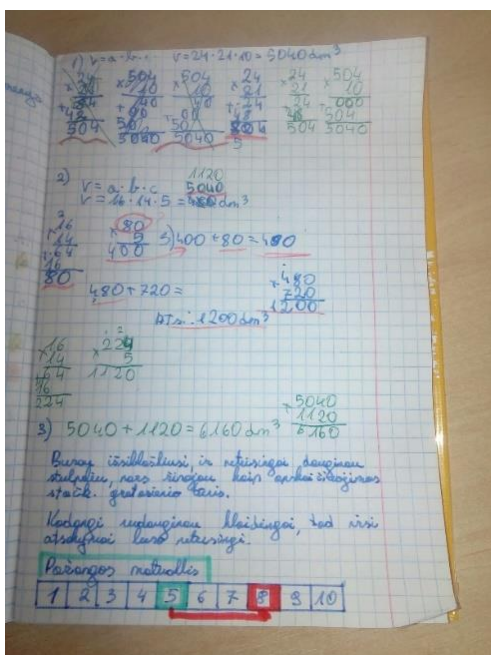 1) V=a·b·c V=24·21·10=5040dm³
24 504 504 24 24 504
×21 ×10 ×10 ×21 ×21 ×10
24 24 000
+48 +504
504 5040 5040 504 5040
2) V=a·b·c 1120
5040
V=16·14·5=dm³
16 80
×14 ×5 3) 400+80=480
+64 400
16
80
480+720= 480
+720
1200
Ats.: 1200dm³
16 224
×14 ×5
64 1120
+16
224
3) 5040+1120=6160dm³ 5040
+1120
6160
Buvau išsiblaškiusi, ir neteisingai dauginau
stulpeliu, nors žinojau kaip apskaičiuojamas
stačk. gretasienio tūris.
Kadangi sudauginau klaidingai, tad visi
atsakymai buvo neteisingi.
Pažangos matuoklis
1 2 3 4 5 6 7 8 9 10